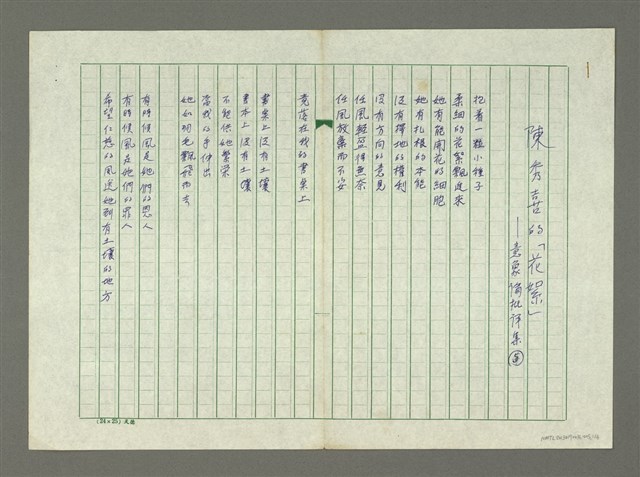 陳秀喜的「花絮」
——意象論批評集
抱着一顆小種子
柔細的花絮飄過來
她有能開花的細胞
她有扎根的本能
沒有擇地的權利
沒有方向的意見
任風輕盈伴無奈
任風放棄而不安
竟落在我的書桌上
書桌上沒有土壤
書本上沒有土壤
不能供她繁榮
當我的手伸出
她如羽毛飄飛而去
有時候風是她們的恩人
有時候風是她們的罪人
希望仁慈的風送她到有土壤的地方
(24×25)